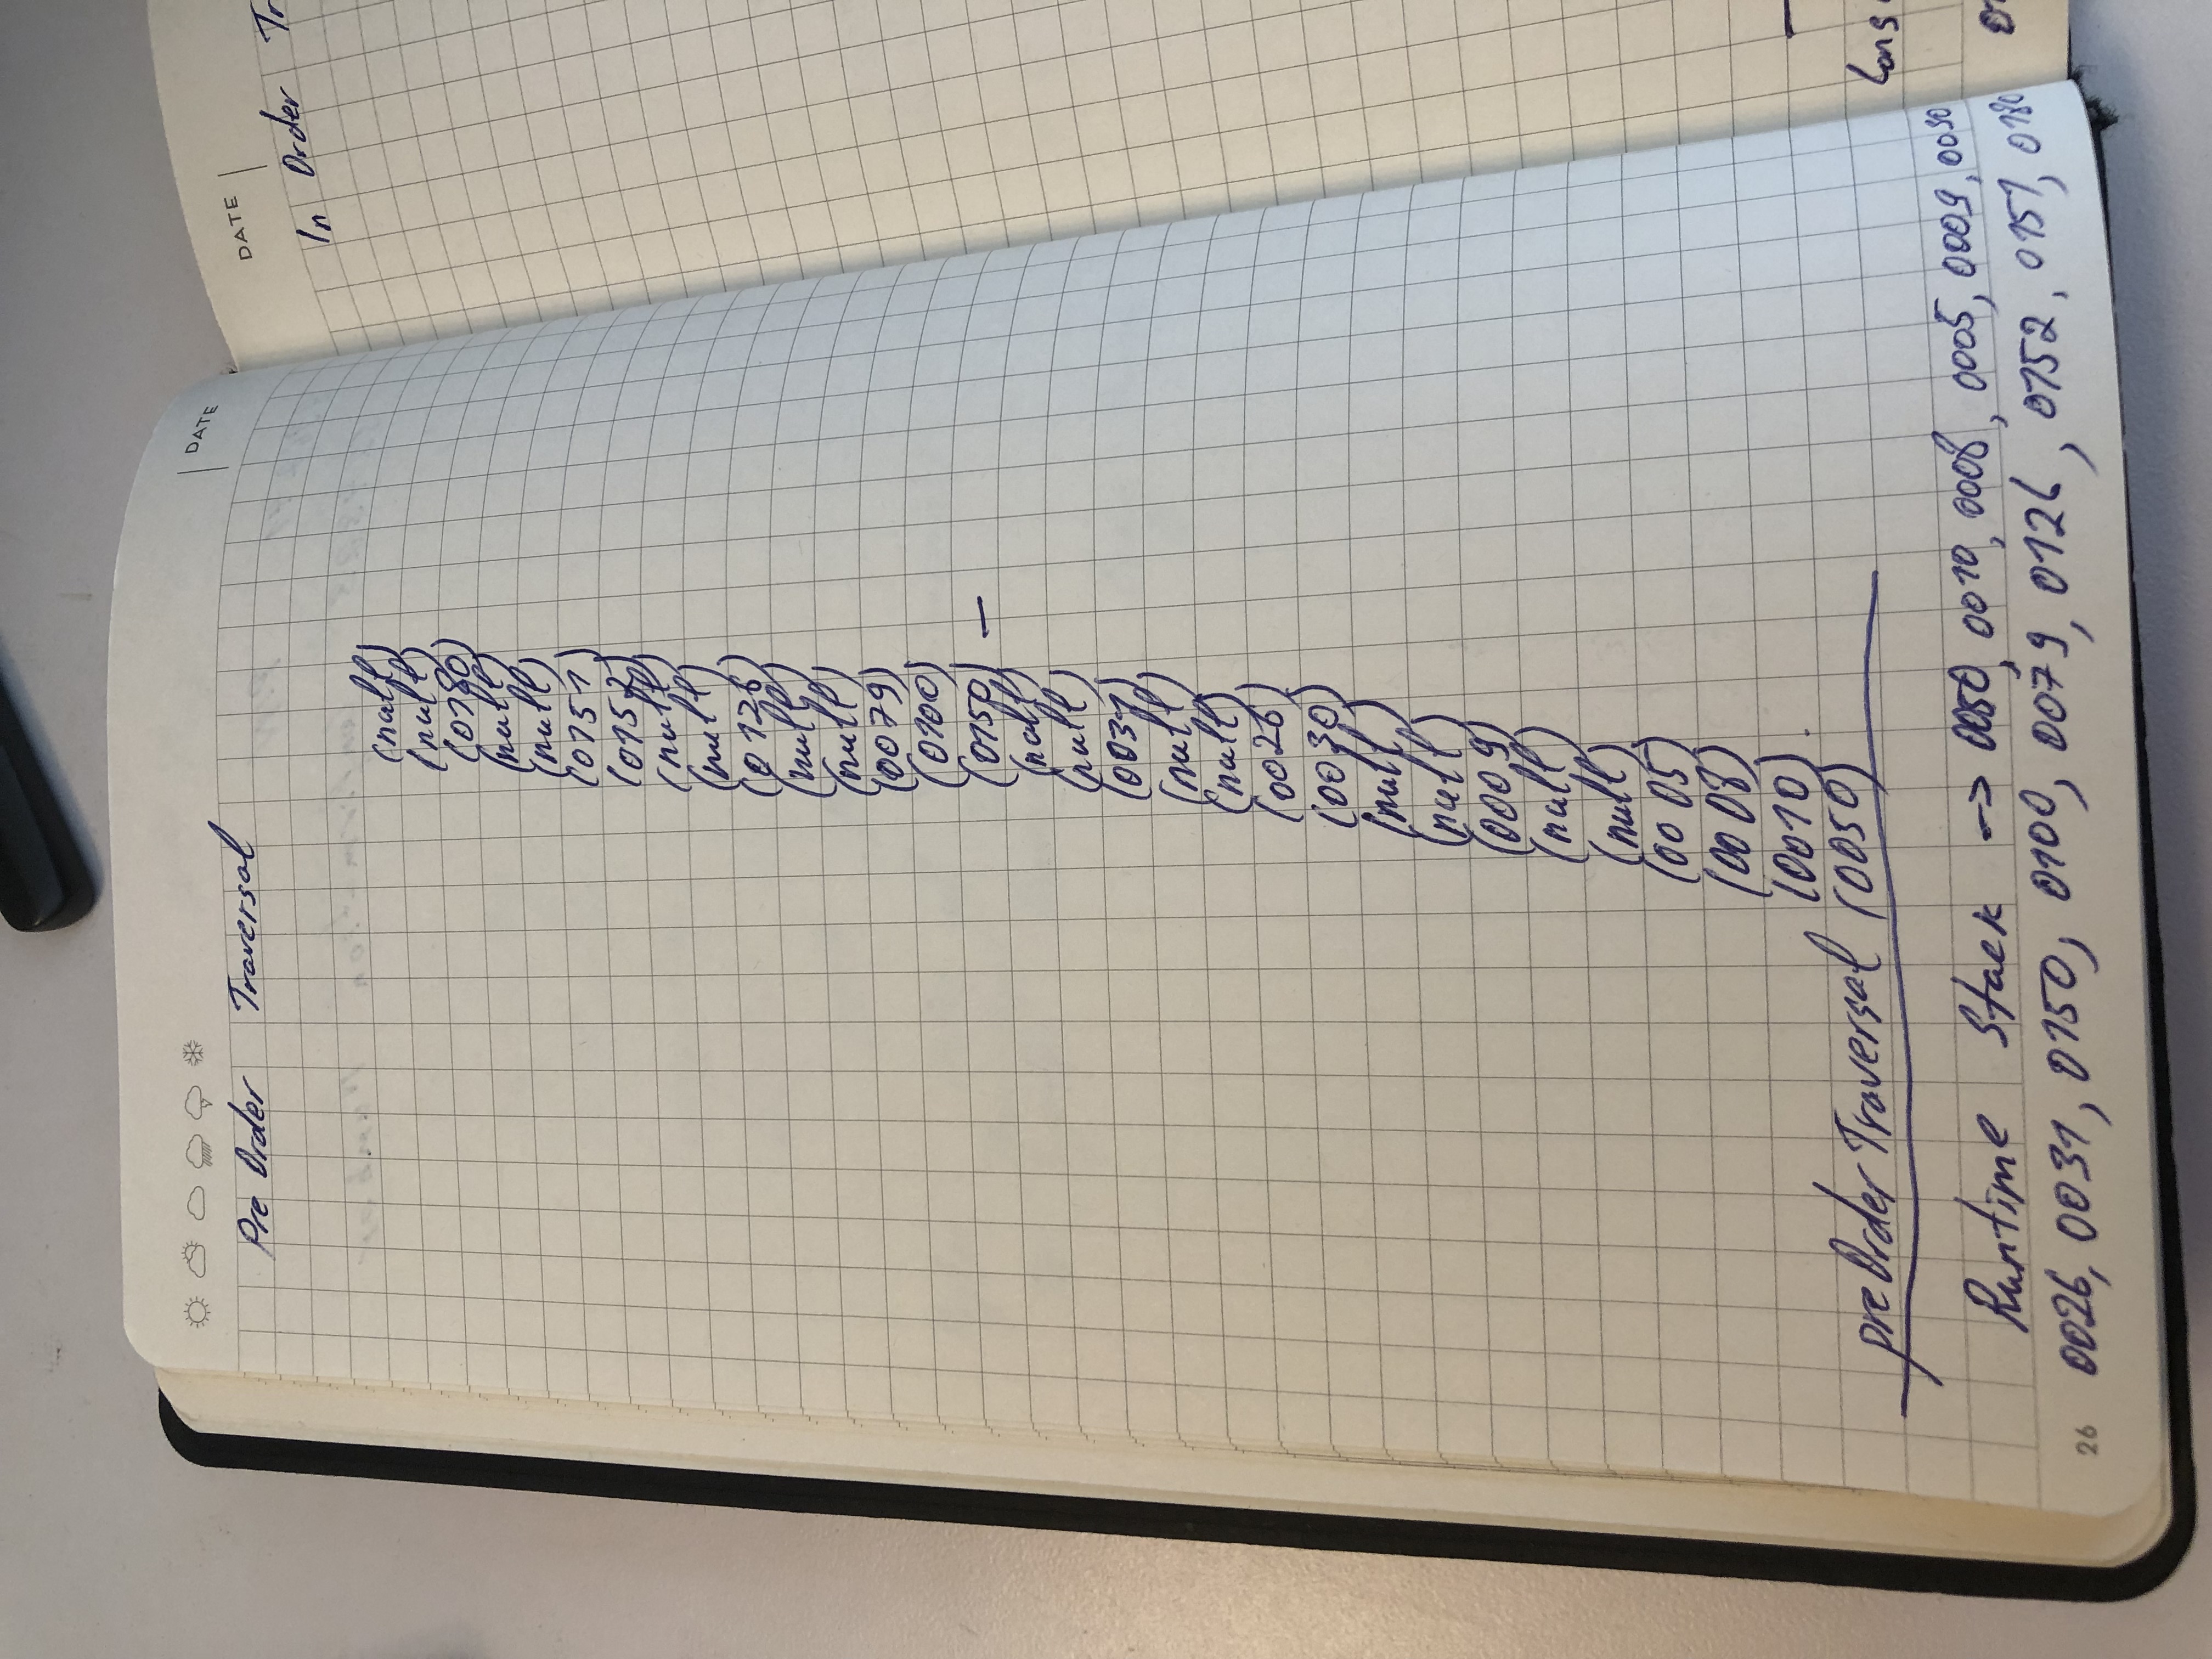 DATE
Pre Order Traversal
(null)
(null)
(0180)
(null)
(null)
(0151)
(0152)
(null)
(null)
(0126)
(null)
(null)
(0079)
(0100)
(0150) —
(null)
(null)
(0031)
(null)
(null)
(0026)
(0030)
(null)
(null)
(0009)
(null)
(null)
(0005)
(0008)
(0010)
preOrderTraversal (0050)
Runtime Stack -> 0050, 0010, 0008, 0005, 0009, 0030
0026, 0031, 0150, 0100, 0079, 0126, 0152, 0151, 0180
26
DATE
In Order Tr